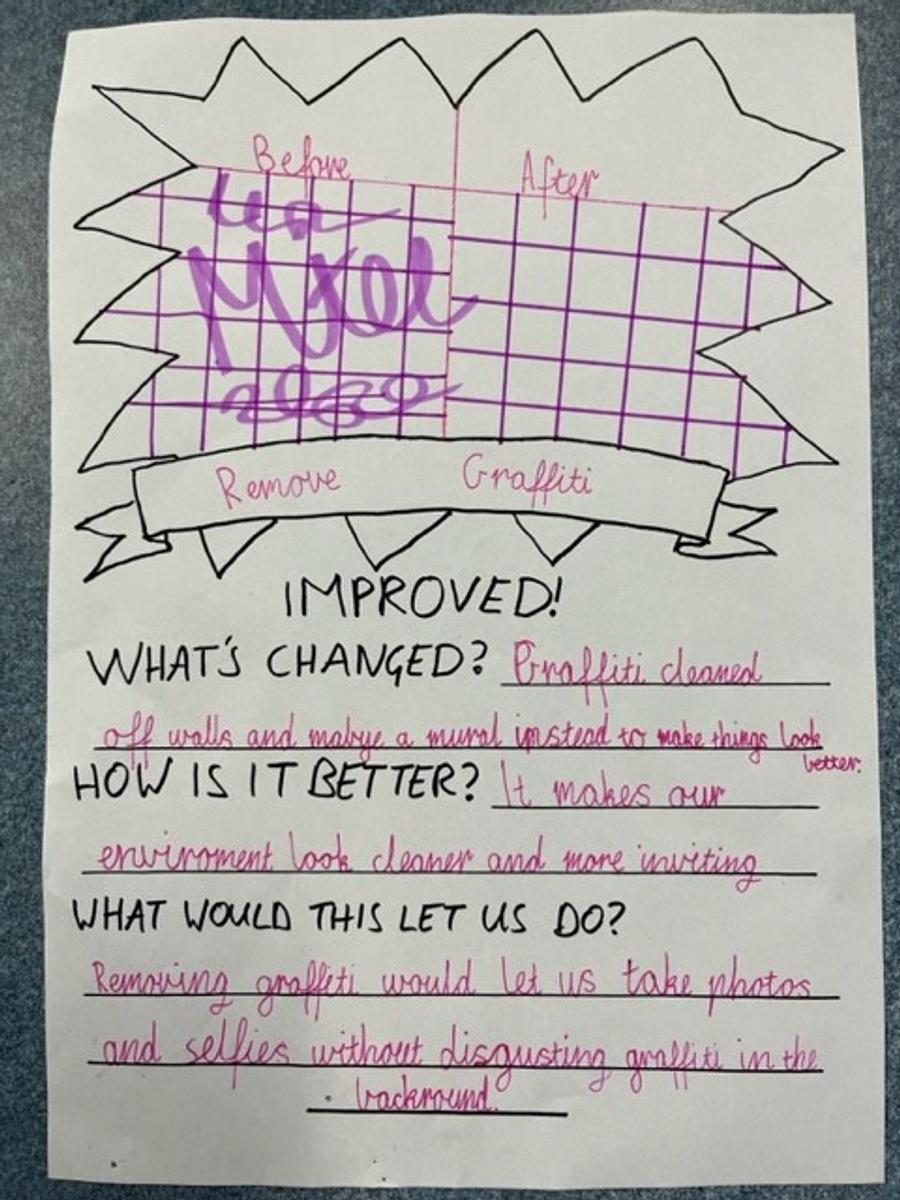 Before
After
Mtel
Remove Graffiti
IMPROVED!
WHAT'S CHANGED? Graffiti cleaned
off walls and mabye a mural instead to make things look
better.
HOW IS IT BETTER? It makes our
enviroment look cleaner and more inviting
WHAT WOULD THIS LET US DO?
Removing graffiti would let us take photos
and selfies without disgusting graffiti in the
backround.